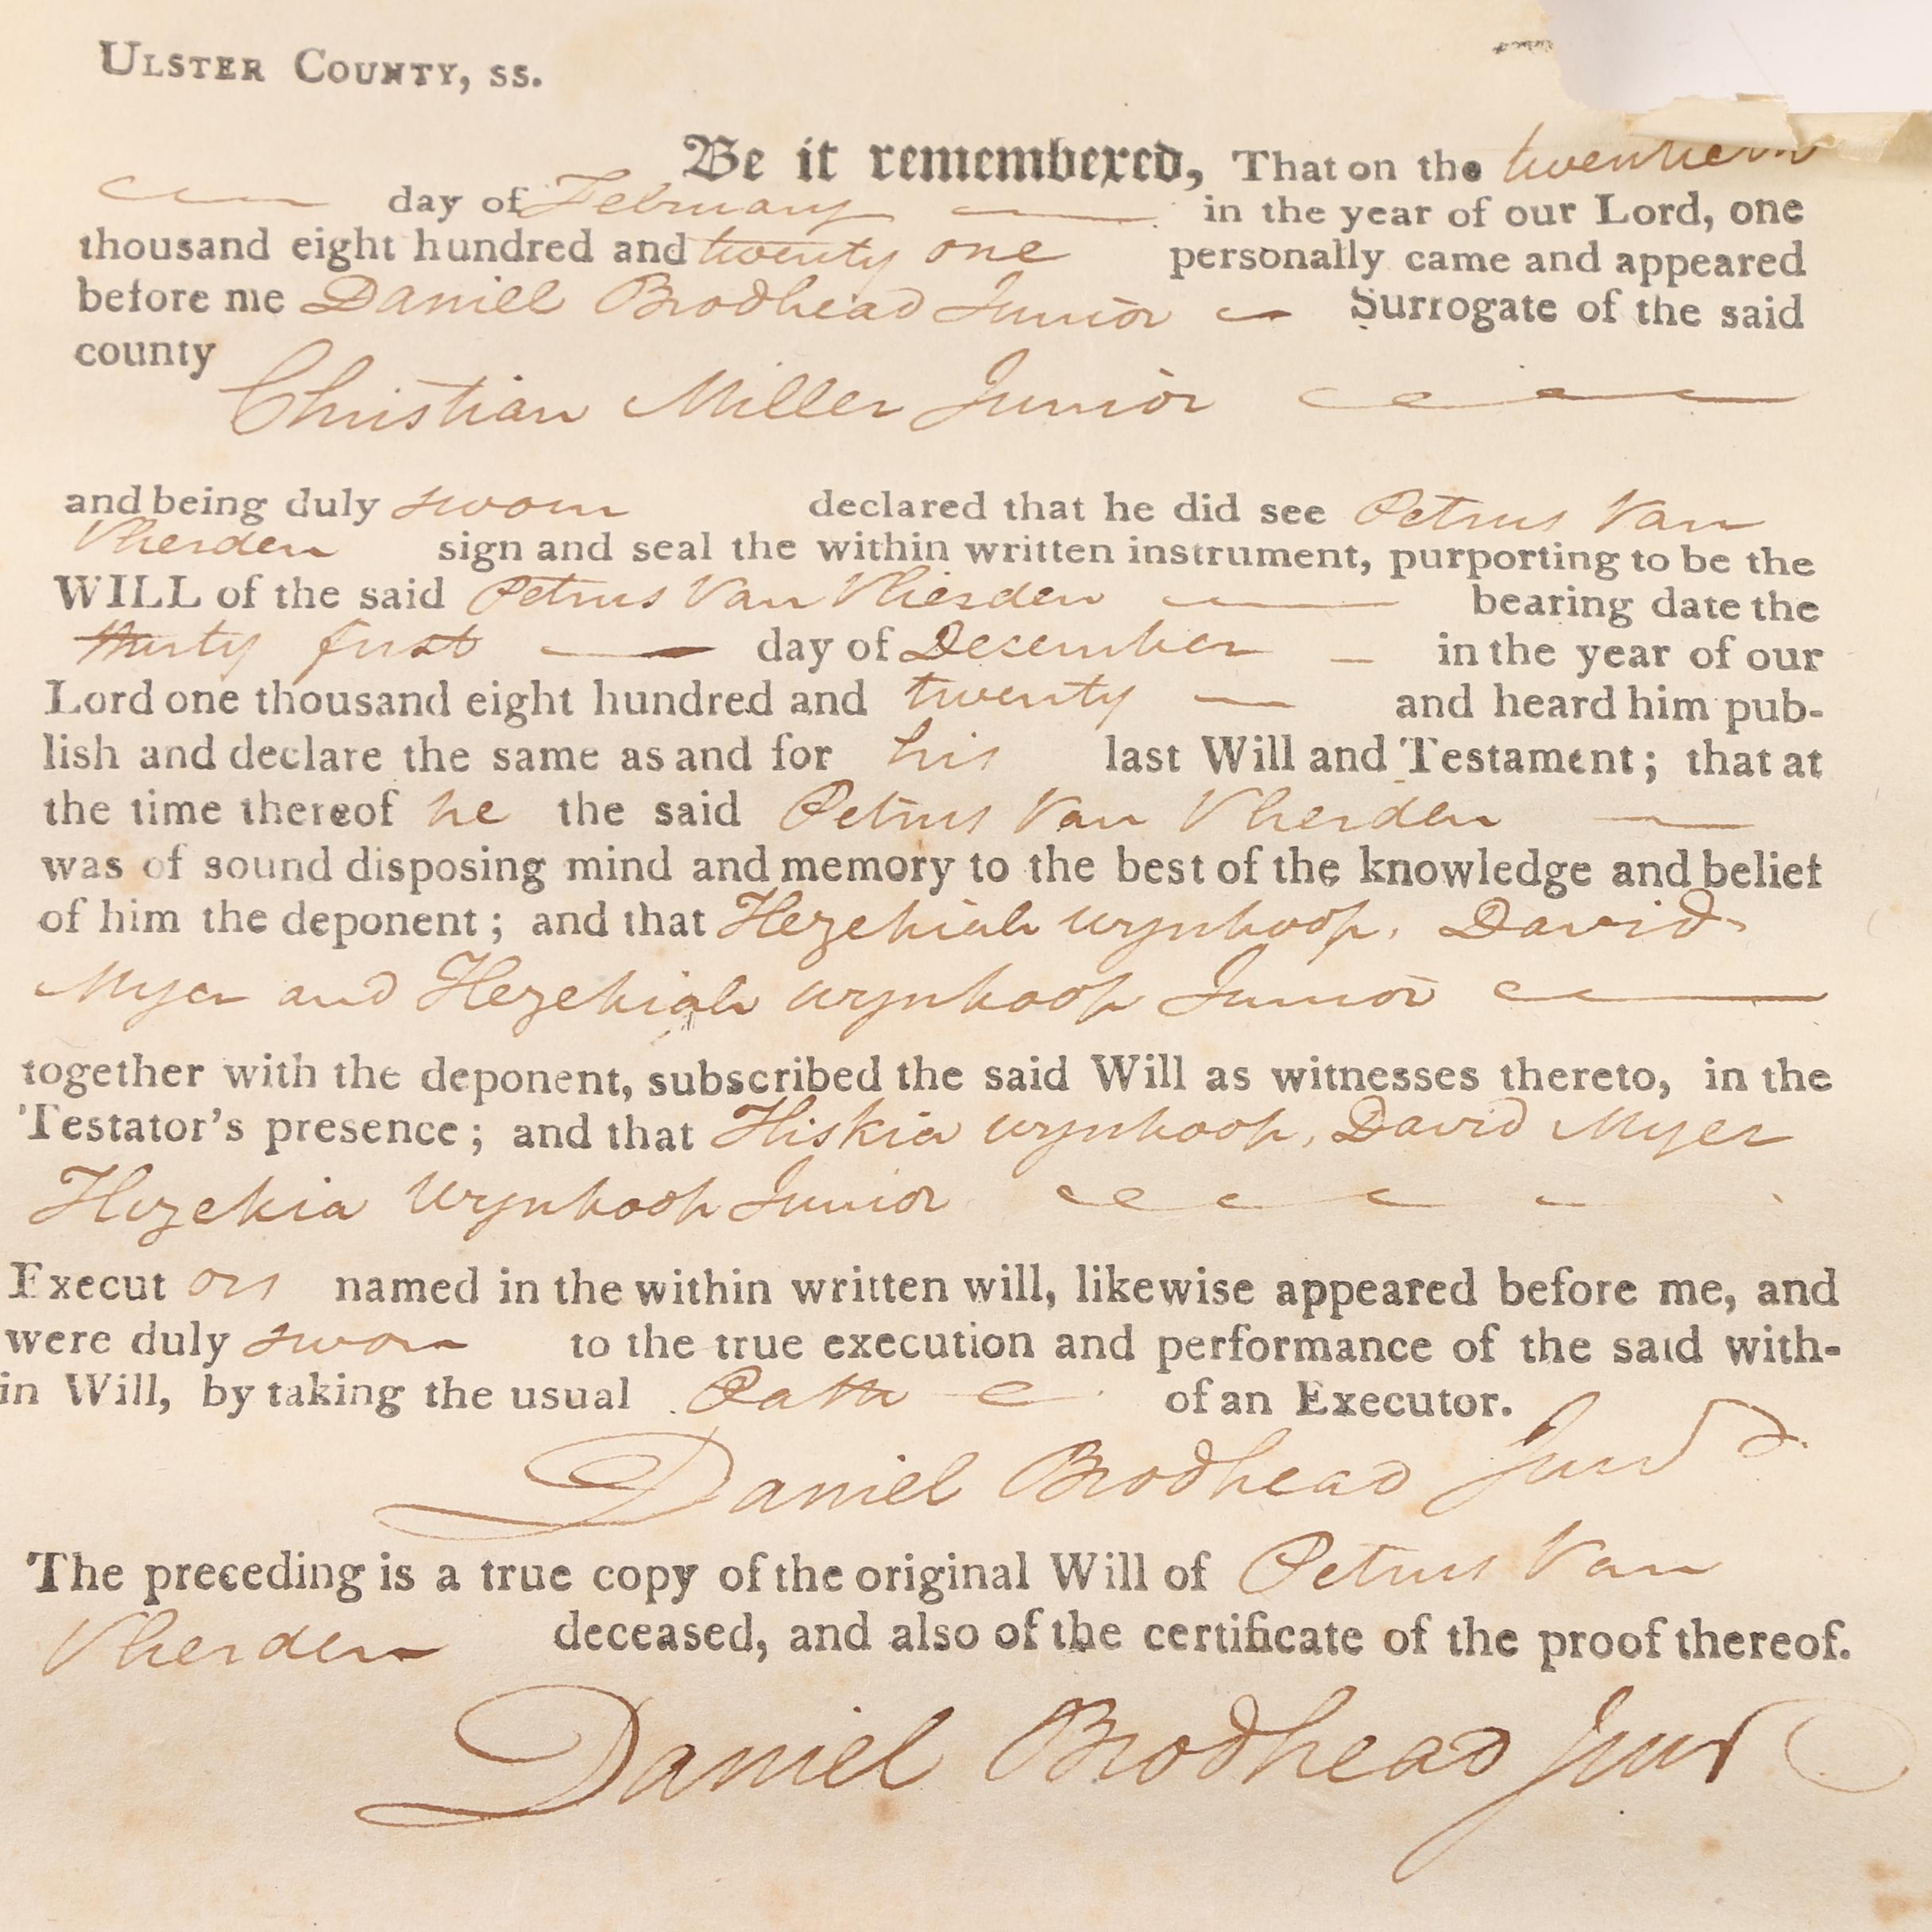 ULSTER COUNTY, SS.
Be it remembered, That on the twentieth
day of February in the year of our Lord, one
thousand eight hundred and twenty one personally came and appeared
before me Daniel Brodhead Junior Surrogate of the said
county
Christian Miller Junior
and being duly sworn declared that he did see Petrus Van
Vlierden sign and seal the within written instrument, purporting to be the
WILL of the said Petrus Van Vlierden bearing date the
thirty first day of December in the year of our
Lord one thousand eight hundred and twenty and heard him pub-
lish and declare the same as and for his last Will and Testament; that at
the time thereof he the said Petrus Van Vlierden
was of sound disposing mind and memory to the best of the knowledge and belief
of him the deponent; and that Hezekiah Wynkoop, David
Myer and Hezekiah Wynkoop Junior
together with the deponent, subscribed the said Will as witnesses thereto, in the
Testator's presence; and that Hiskia Wynkoop, David Myer
Hezekia Wynkoop Junior
Executors named in the within written will, likewise appeared before me, and
were duly sworn to the true execution and performance of the said with-
in Will, by taking the usual Oath of an Executor.
Daniel Brodhead Junr
The preceding is a true copy of the original Will of Petrus Van
Vlierden deceased, and also of the certificate of the proof thereof.
Daniel Brodhead Junr